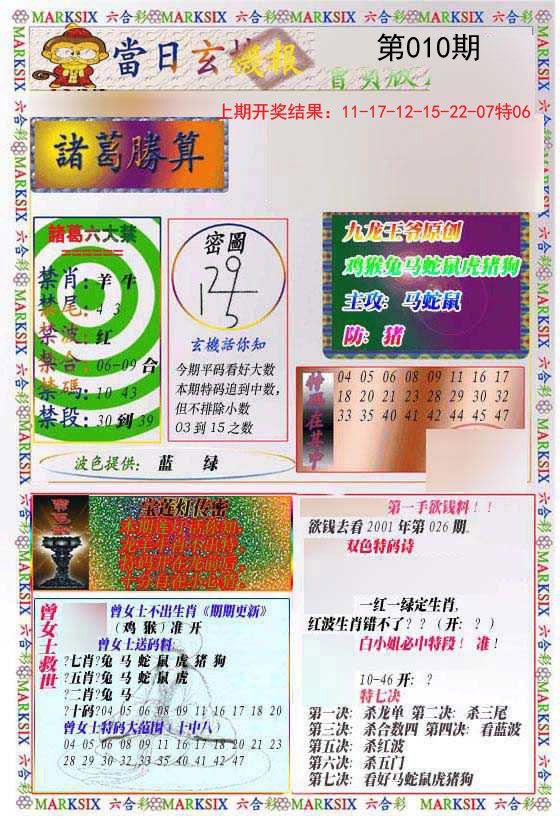 MARKSIX 六合彩 MARKSIX 六合彩 MARKSIX 六合彩 MARKSIX 六合彩 MARKSIX
當日玄機報
第010期
上期开奖结果：11-17-12-15-22-07特06
諸葛勝算
諸葛六大禁
禁肖：羊 牛
禁尾：4 3
禁波：红
禁合：06-09 合
禁碼：10 43
禁段：30 到 39
密圖
玄機活你知
今期平码看好大数
本期特码追到中数，
但不排除小数
03 到 15 之数
九龙王爷原创
鸡猴兔马蛇鼠虎猪狗
主攻：马蛇鼠
防：猪
特码在其中
04 05 06 08 09 11 16 17
18 20 21 23 28 29 30 32
33 35 40 41 42 44 45 47
波色提供：蓝 绿
宝莲灯传密
曾女士救世
曾女士不出生肖《期期更新》
（鸡 猴）准 开
曾女士送码料
?七肖?兔 马 蛇 鼠 虎 猪 狗
?五肖?兔 马 蛇 鼠 虎
?二肖?兔 马
?十码?04 05 06 08 09 11 16 17 18 20
曾女士特码大范围（十中八）
04 05 06 08 09 11 16 17 18 20 21 23
28 29 30 32 33 35 40 41 42 47
第一手欲钱料！！
欲钱去看 2001 年第 026 期。
双色特码诗
一红一绿定生肖，
红波生肖错不了？？（开：？）
白小姐必中特段！ 准！
10-46 开：？
特七决
第一决：杀龙单 第二决：杀三尾
第三决：杀合数四 第四决：看蓝波
第五决：杀红波
第六决：杀五门
第七决：看好马蛇鼠虎猪狗
MARKSIX 六合彩 MARKSIX 六合彩 MARKSIX 六合彩 MARKSIX 六合彩 MARKSIX